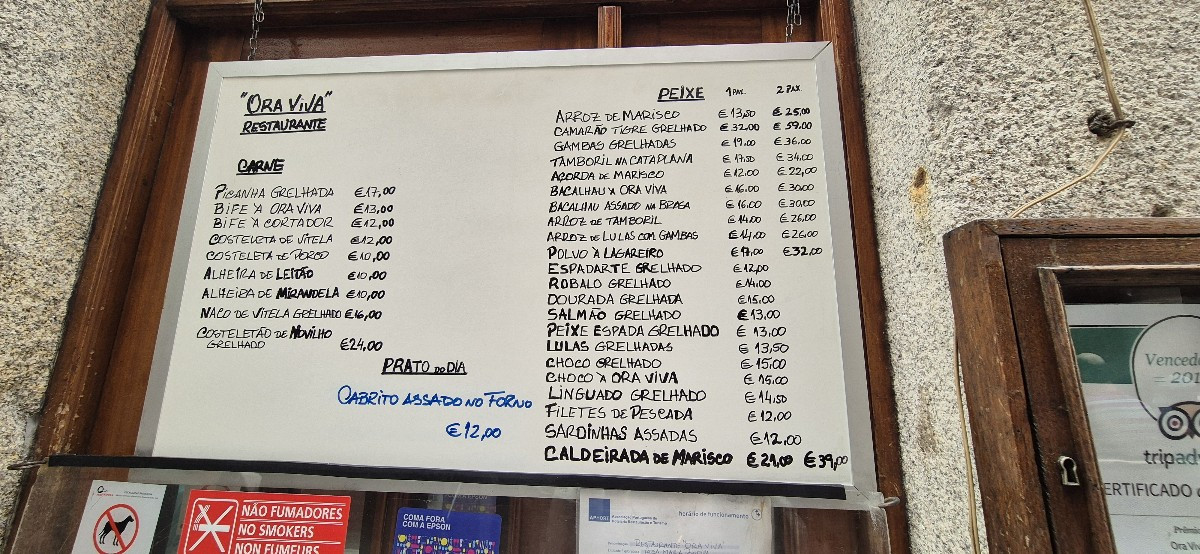 "ORA VIVA"
RESTAURANTE
CARNE
PICANHA GRELHADA €17,00
BIFE À ORA VIVA €13,00
BIFE À CORTADOR €12,00
COSTELETA DE VITELA €12,00
COSTELETA DE PORCO €10,00
ALHEIRA DE LEITÃO €10,00
ALHEIRA DE MIRANDELA €10,00
NACO DE VITELA GRELHADO €16,00
COSTELETÃO DE NOVILHO
GRELHADO €24,00
PRATO DO DIA
CABRITO ASSADO NO FORNO
€12,00
PEIXE 1 PAX. 2 PAX.
ARROZ DE MARISCO €13,50 €25,00
CAMARÃO TIGRE GRELHADO €32,00 €59,00
GAMBAS GRELHADAS €19,00 €36,00
TAMBORIL NA CATAPLANA €17,50 €34,00
AÇORDA DE MARISCO €12,00 €22,00
BACALHAU À ORA VIVA €16,00 €30,00
BACALHAU ASSADO NA BRASA €16,00 €30,00
ARROZ DE TAMBORIL €14,00 €26,00
ARROZ DE LULAS COM GAMBAS €14,00 €26,00
POLVO À LAGAREIRO €17,00 €32,00
ESPADARTE GRELHADO €12,00
ROBALO GRELHADO €14,00
DOURADA GRELHADA €15,00
SALMÃO GRELHADO €13,00
PEIXE ESPADA GRELHADO €13,00
LULAS GRELHADAS €13,50
CHOCO GRELHADO €15,00
CHOCO À ORA VIVA €15,00
LINGUADO GRELHADO €14,50
FILETES DE PESCADA €12,00
SARDINHAS ASSADAS €12,00
CALDEIRADA DE MARISCO €21,00 €39,00
NÃO FUMADORES
NO SMOKERS
NON FUMEURS
COMA FORA
COM A EPSON
horário de funcionamento
RESTAURANTE ORA VIVA
Vencedo
= 201
tripadv
ERTIFICADO
Ora V